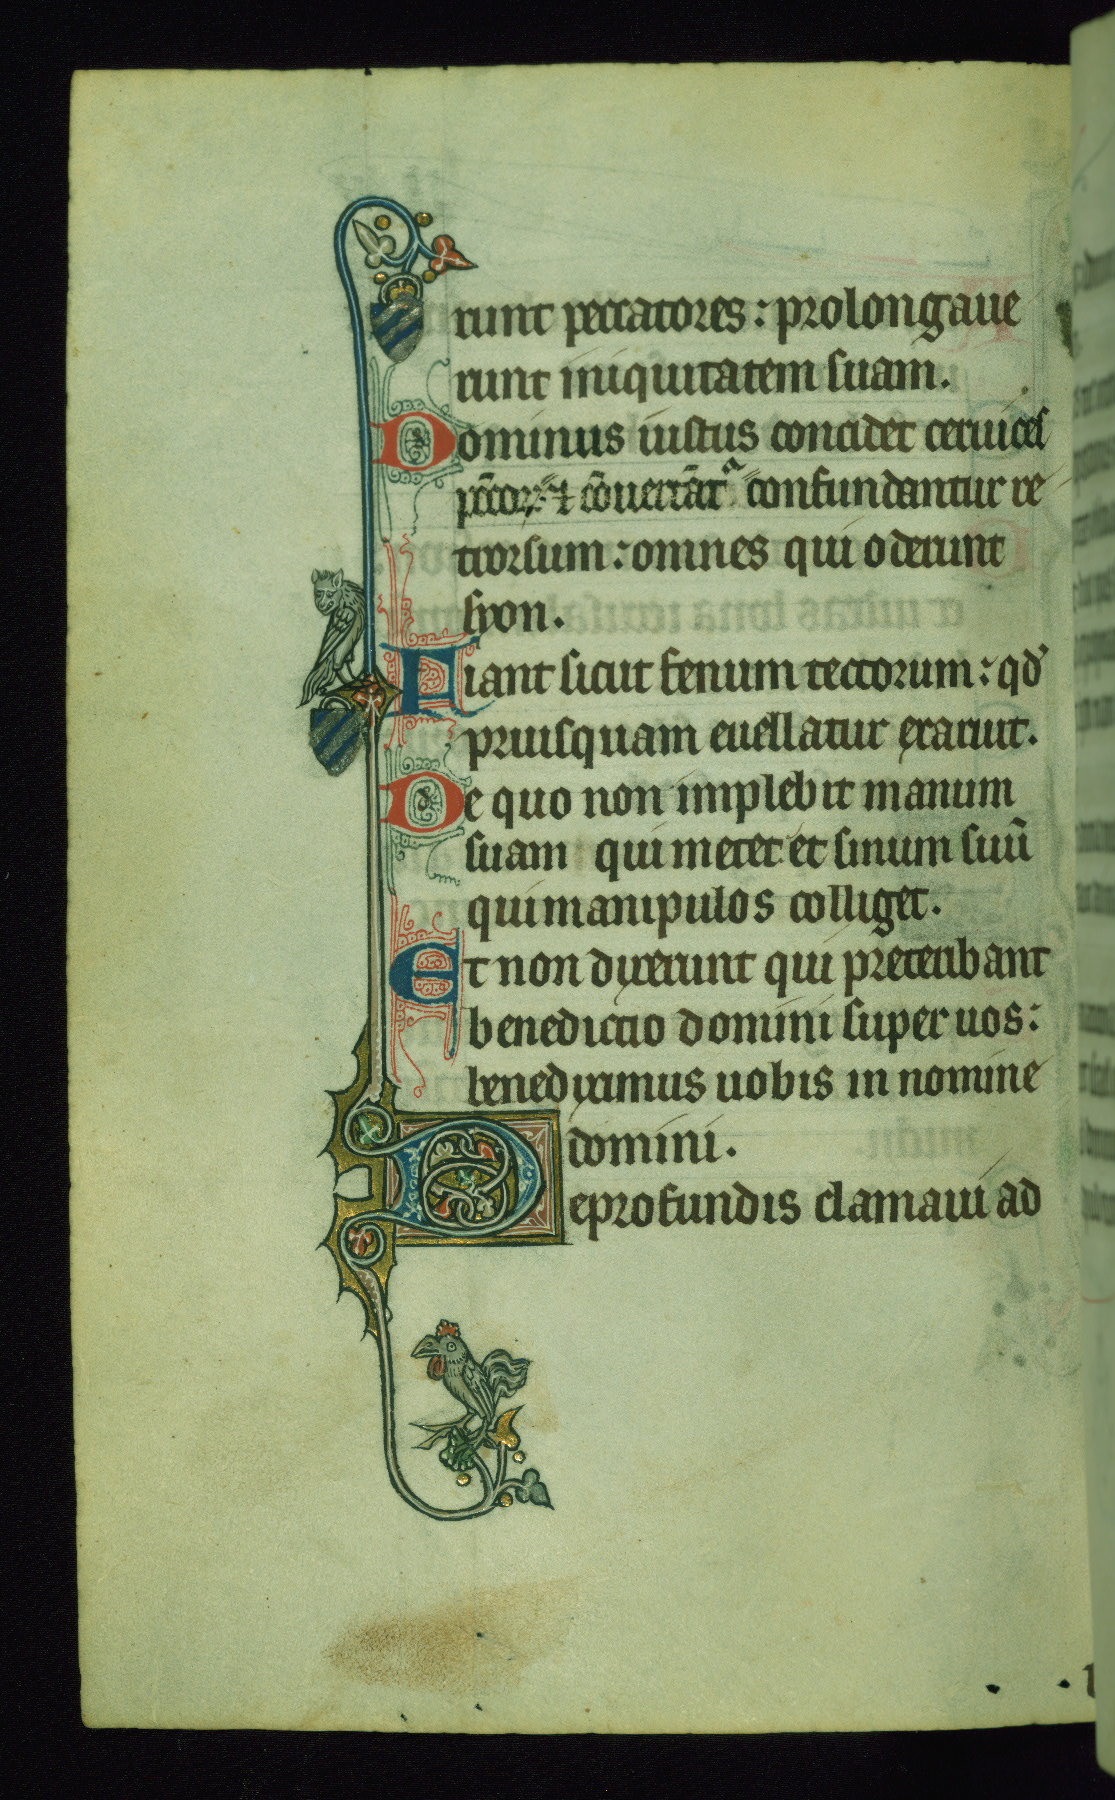 runt peccatores : prolongaue
runt iniquitatem suam.
Dominus iustus concidet ceruices
pc̄cor₂ : ⁊ cōuertāt᷑ confundantur re
trorsum : omnes qui oderunt
syon.
Fiant sicut fenum tectorum : qd̕
priusquam euellatur exaruit.
De quo non implebit manum
suam qui metet et sinum suū
qui manipulos colliget.
Et non dixerunt qui preteribant
benedictio domini super uos :
benediximus uobis in nomine
domini.
De profundis clamaui ad